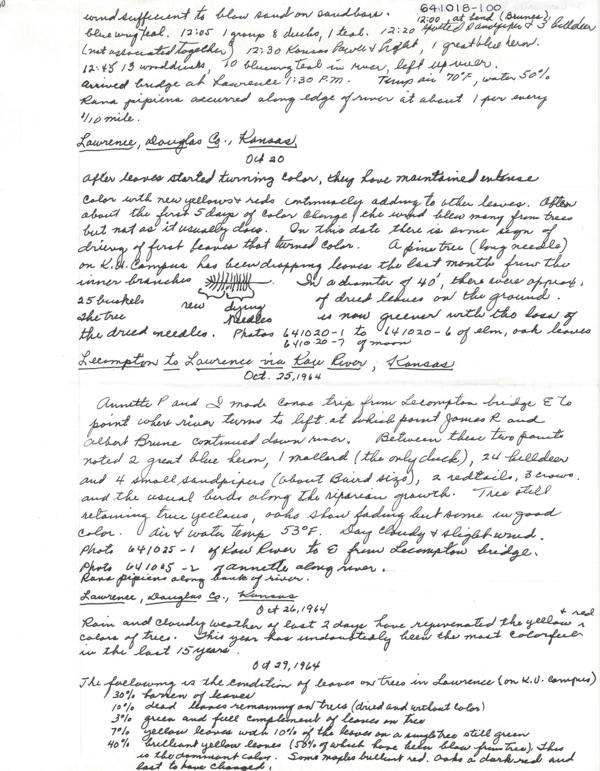 641018-100
wind sufficient to blow sand on sandbars. 12:00 at bend (Brunes)
blue wing teal. 12:05 1 group 8 ducks, 1 teal. 12:20 spotted Sandpiper & 3 killdeer
(not associated together) 12:30 Kansas Power & Light, 1 great blue heron.
12:45 13 wood ducks, 10 bluewing teal in river, left up river.
Arrived bridge at Lawrence 1:30 P.M. Temp air 70°F, water 50%
Rana pipiens occurred along edge of river at about 1 per every
1/10 mile.
Lawrence, Douglas Co., Kansas
Oct 20
After leaves started turning color, they have maintained intense
color with new yellows & reds continually adding to other leaves. After
about the first 5 days of color change, the wind blew many from trees
but not as it usually does. On this date there is some sign of
drieing of first leaves that turned color. A pine tree (long needle)
on K.U. Campus has been dropping leaves the last month from the
inner branches In a diameter of 40', there were approx.
25 bushels new dying needles of dried leaves on the ground.
The tree is now greener with the loss of
the dried needles. Photos 641020-1 to 641020-6 of elm, oak leaves
641020-7 of moon
Lecompton to Lawrence via Kaw River, Kansas
Oct. 25, 1964
Annette P and I made canoe trip from Lecompton bridge E to
point where river turns to left at which point James R and
Albert Brune continued down river. Between these two points
noted 2 great blue heron, 1 mallard (the only duck), 24 killdeer
and 4 small sandpipers (about Baird size), 2 redtails, 3 crows.
and the usual birds along the riparean growth. Trees still
retaining true yellows, oaks show fading but some in good
color. Air & water temp 53°F. Day cloudy & slight wind.
Photo 641025-1 of Kaw River to E from Lecompton bridge.
Photo 641025-2 of Annette along river.
Rana pipiens along bank of river.
Lawrence, Douglas Co., Kansas
Oct 26, 1964
Rain and cloudy weather of last 2 days have rejuvenated the yellow & red
colors of trees. This year has undoubtedly been the most colorful
in the last 15 years.
Oct 29, 1964
The following is the condition of leaves on trees in Lawrence (on K.U. campus)
30% barren of leaves
10% dead leaves remaining on trees (dried and without color)
3% green and full complement of leaves on tree
7% yellow leaves with 10% of the leaves on a single tree still green
40% brilliant yellow leaves (50% of which have been blown from tree). This
is the dominant color. Some maples brilliant red. Oaks a dark red and
last to have changed.